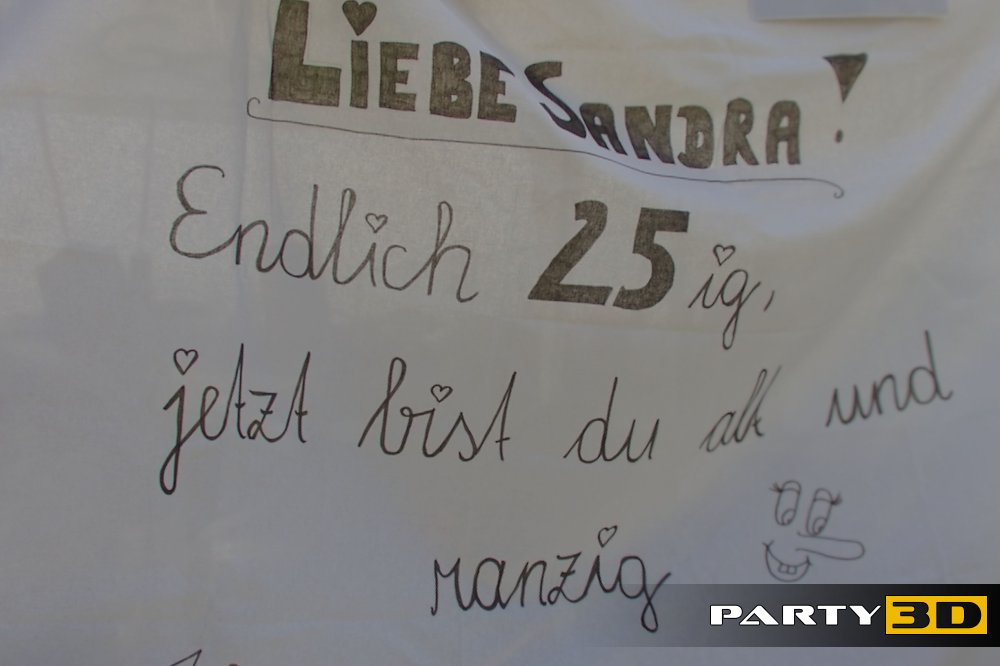 LIEBE SANDRA!
Endlich 25ig,
jetzt bist du alt und
ranzig
PARTY 3D